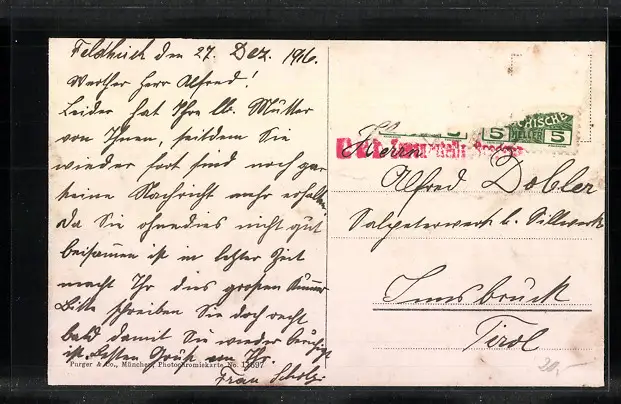 Feldkirch den 27. Dez. 1916.
Werther Herr Alfred!
Leider hat Ihre lb. Mutter
von Ihnen, seitdem Sie
wieder fort sind noch gar
keine Nachricht mehr erhalten.
Da Sie ohnedies nicht gut
beisamen ist in letzter Zeit
macht Ihr dies großen Kummer
Bitte schreiben Sie doch recht
bald damit Sie wieder beruhigt
ist. Besten Gruß von Ihr.
Frau Scholz
Purger & Co., München, Photochromiekarte No. 11697
5 5
Herrn
Alfred Dobler
Salpeterwerk b. Sillwerk
Innsbruck
Tirol
30,-